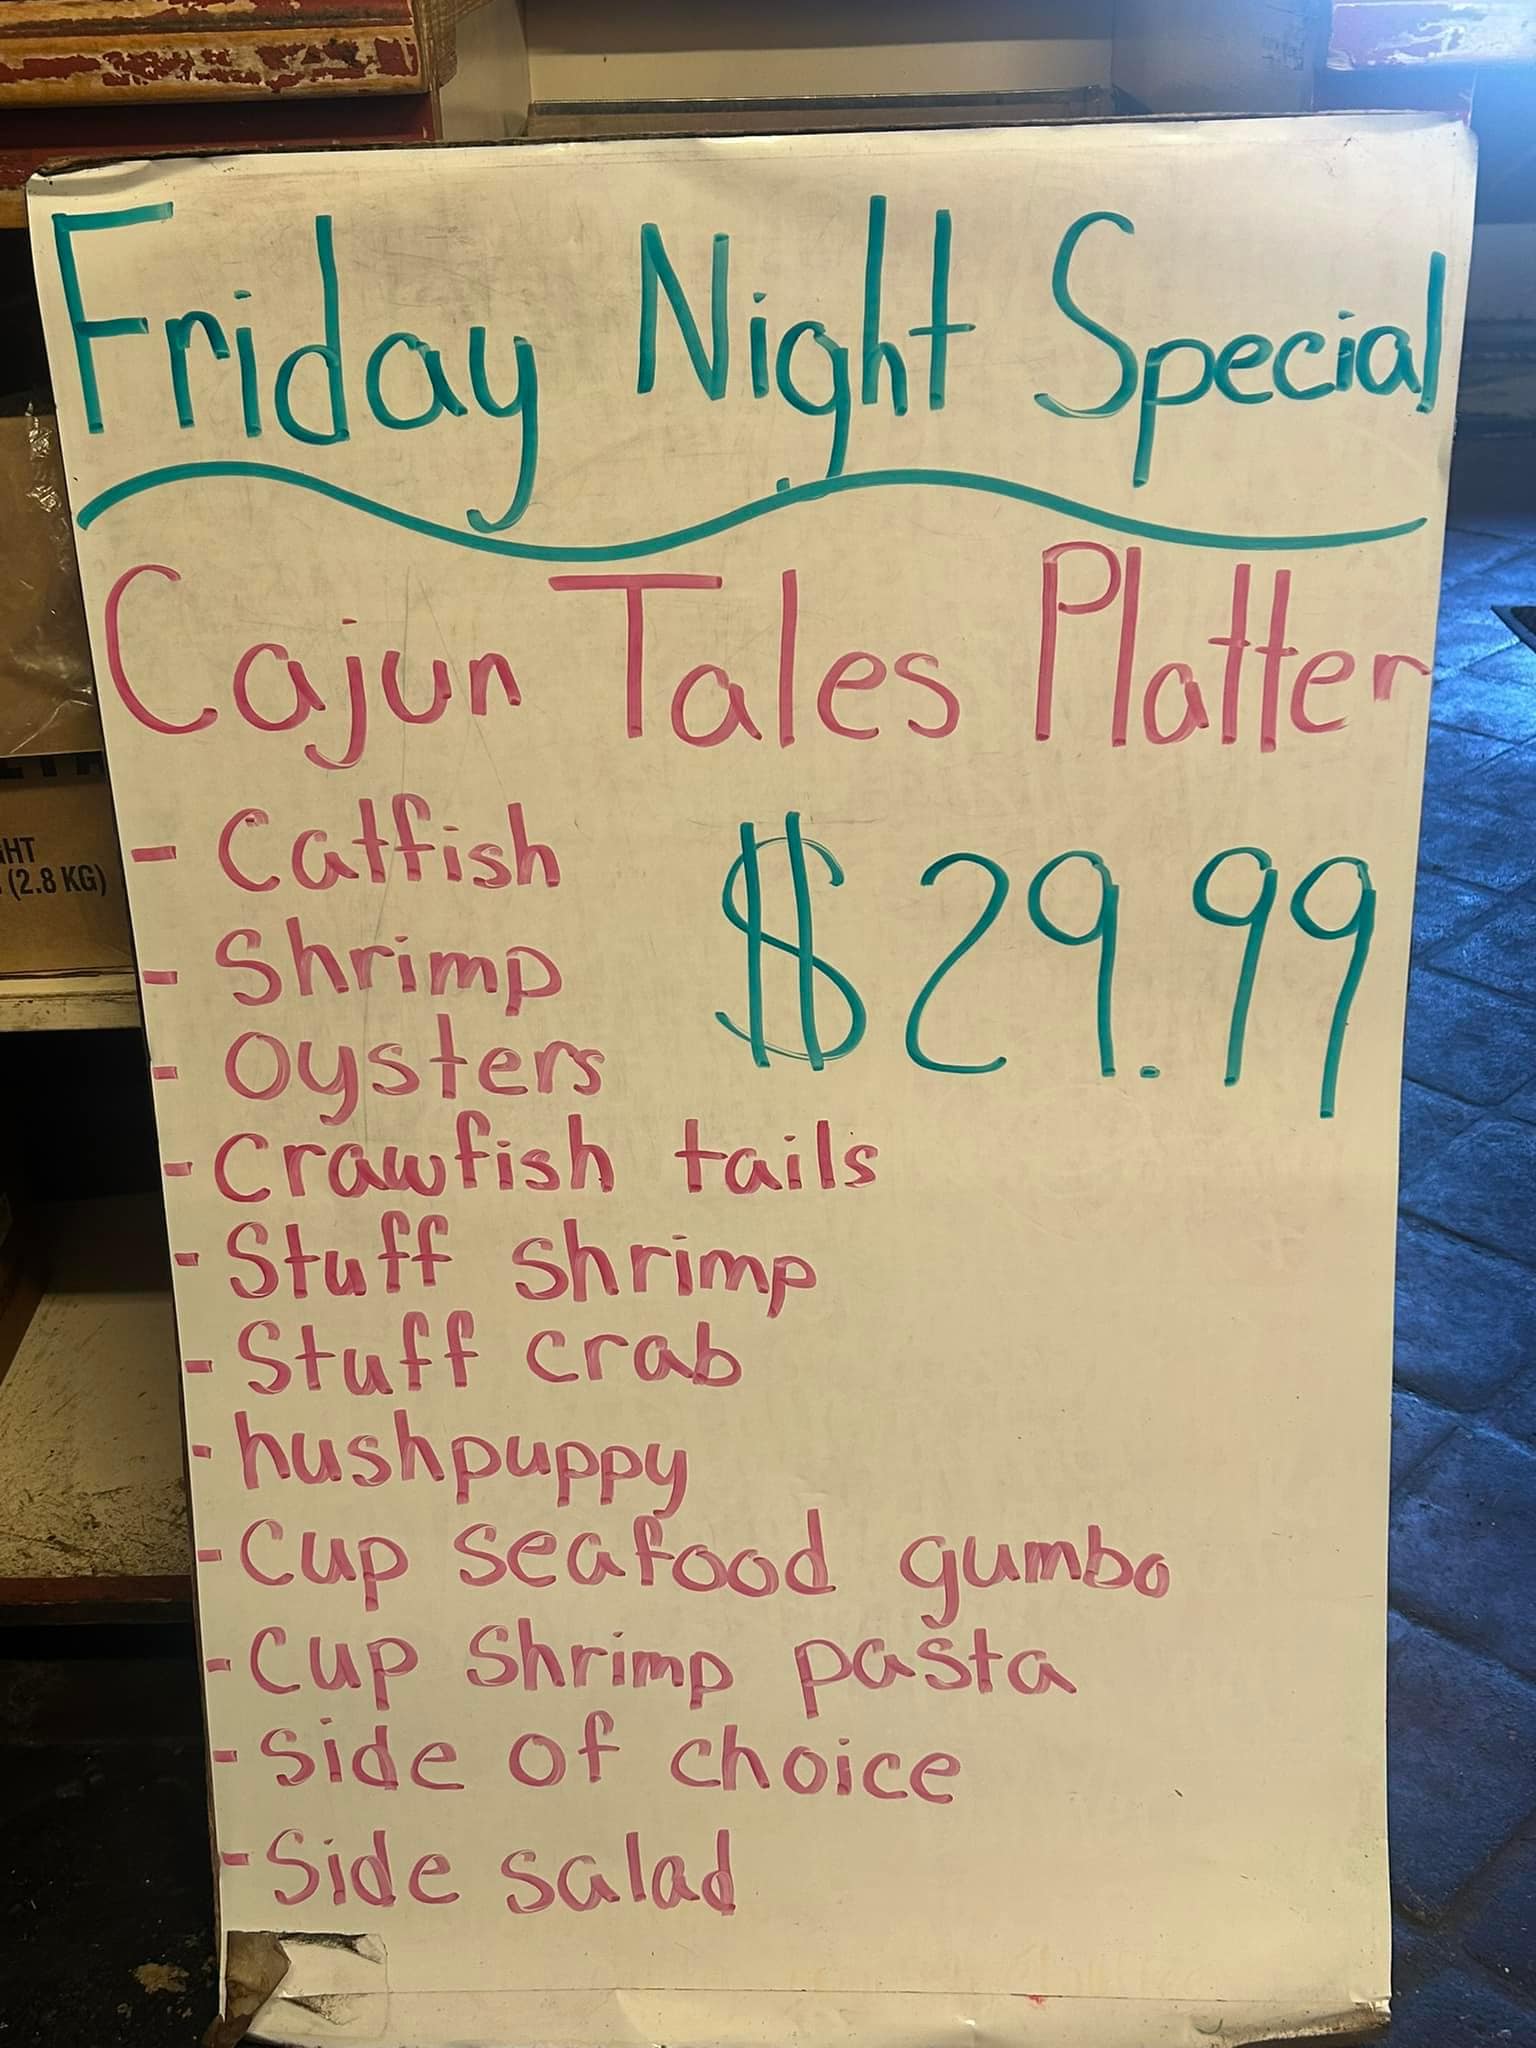 Friday Night Special
Cajun Tales Platter
- Catfish
$29.99
- Shrimp
- Oysters
- Crawfish tails
- Stuff shrimp
- Stuff crab
- hushpuppy
- Cup seafood gumbo
- Cup Shrimp pasta
- Side of choice
- Side salad
(2.8 KG)